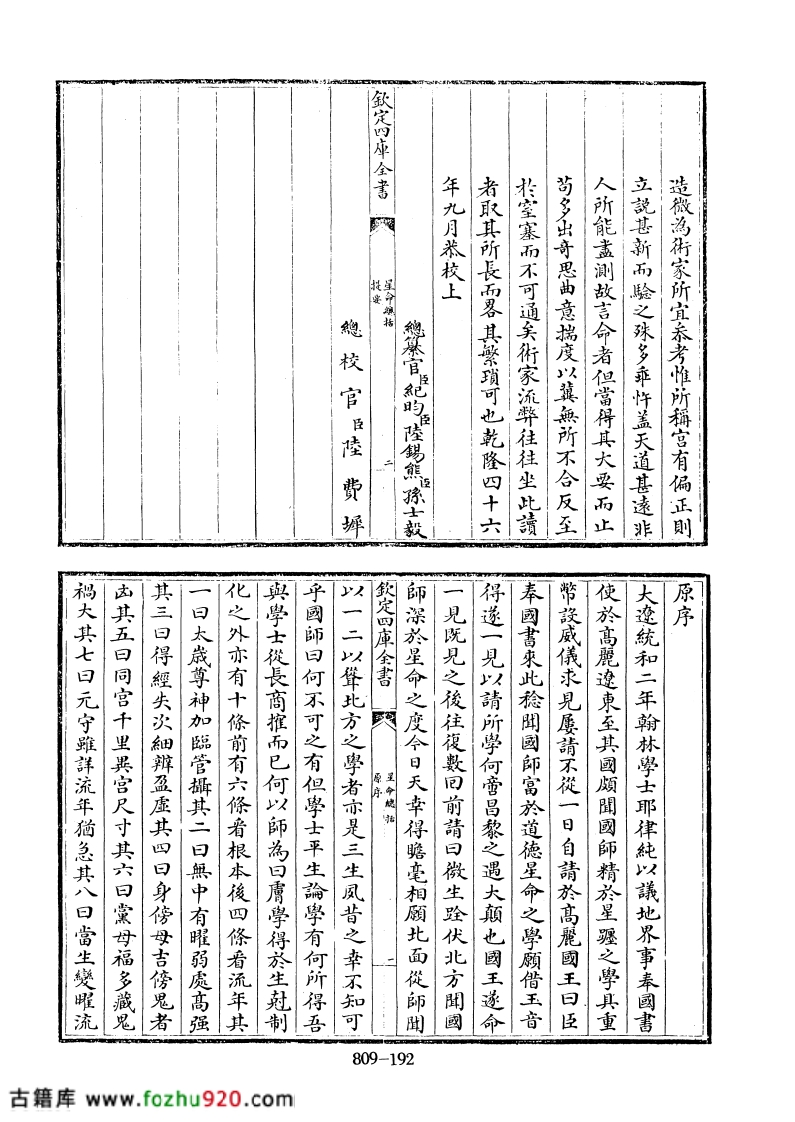 造微為術家所宜叅考惟所稱宫有偏正則
立説甚新而驗之殊多乖忤盖天道甚遠非
人所能盡測故言命者但當得其大要而止
苟多出奇思曲意揣度以冀無所不合反至
於窒塞而不可通矣術家流弊往往坐此讀
者取其所長而畧其繁瑣可也乾隆四十六
年九月恭校上
總纂官臣紀昀臣陸錫熊臣孫士毅
欽定四庫全書
星命總括
提要
二
總校官臣陸費墀
原序
大遼統和二年翰林學士耶律純以議地界事奉國書
使於髙麗遼東至其國頗聞國師精於星躔之學具重
幣設威儀求見屢請不從一日自請於髙麗國王曰臣
奉國書來此稔聞國師富於道德星命之學願借王音
得遂一見以請所學何啻昌黎之遇大顛也國王遂命
一見既見之後往復數回前請曰微生跧伏北方聞國
師深於星命之度今日天幸得瞻毫相願北面從師聞
欽定四庫全書
星命總括
原序
二
以一二以聳北方之學者亦是三生夙昔之幸不知可
乎國師曰何不可之有但學士平生論學有何所得吾
與學士從長商搉而已何以師為曰膚學得於生尅制
化之外亦有十條前有六條看根本後四條看流年其
一曰太歲尊神加臨管攝其二曰無中有曜弱處髙强
其三曰得經失次細辨盈虚其四曰身傍母吉傍鬼者
凶其五曰同宫千里異宫尺寸其六曰黨母福多藏鬼
禍大其七曰元守雖詳流年猶急其八曰當生變曜流
809-192
古籍库 www.fozhu920.com